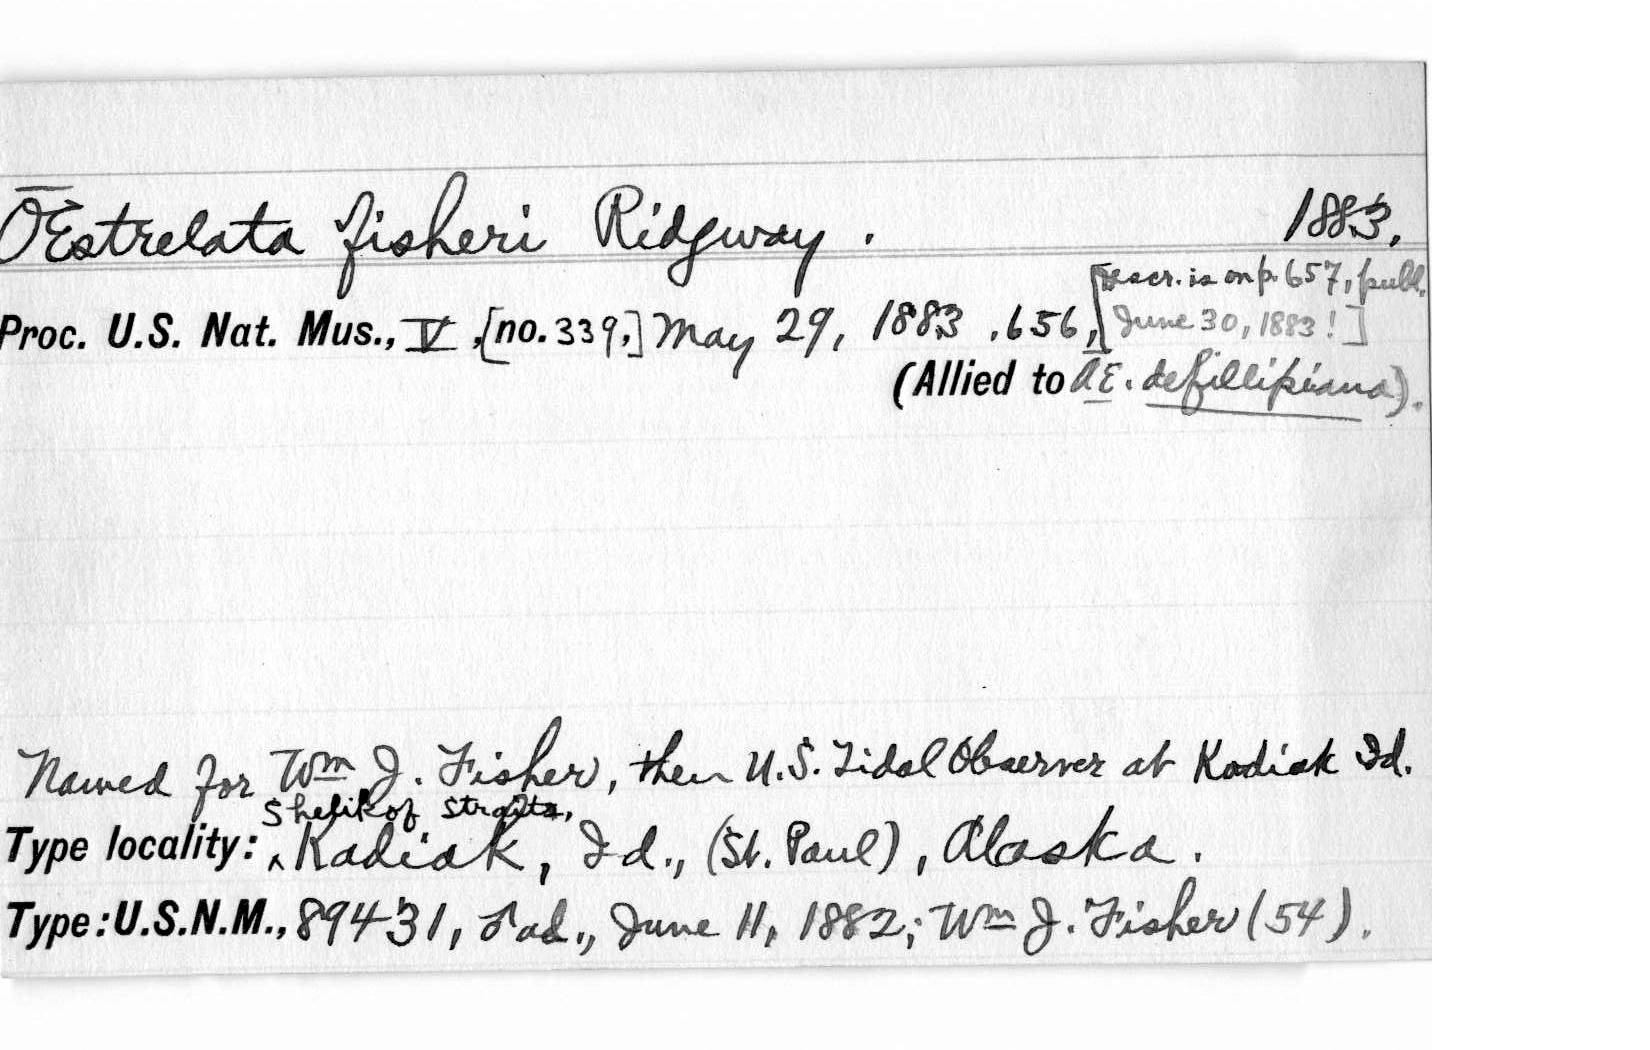 Œstrelata fisheri Ridgway. 1883.
[Descr. is on p. 657, publ.
Proc. U.S. Nat. Mus., V, [no. 339,] May 29, 1883, 656, June 30, 1883!]
(Allied to Æ. defillipiana).
Named for Wm J. Fisher, then U.S. Tidal Observer at Kodiak Id.
Shelikof Straits,
Type locality: ^ Kadiak, Id., (St. Paul), Alaska.
Type: U.S.N.M., 89431, ad., June 11, 1882; Wm J. Fisher (54).